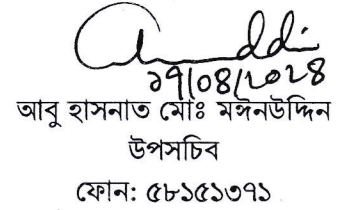 ১৭/০৪/২০২৪
আবু হাসনাত মোঃ মঈনউদ্দিন
উপসচিব
ফোন: ৫৮১৫১৩৭১